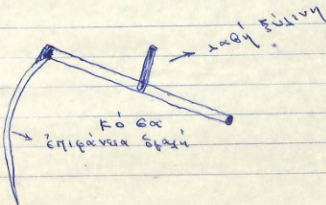 λαβή ξύλινη
κόσα
ἐπιφάνεια ὁμαλή